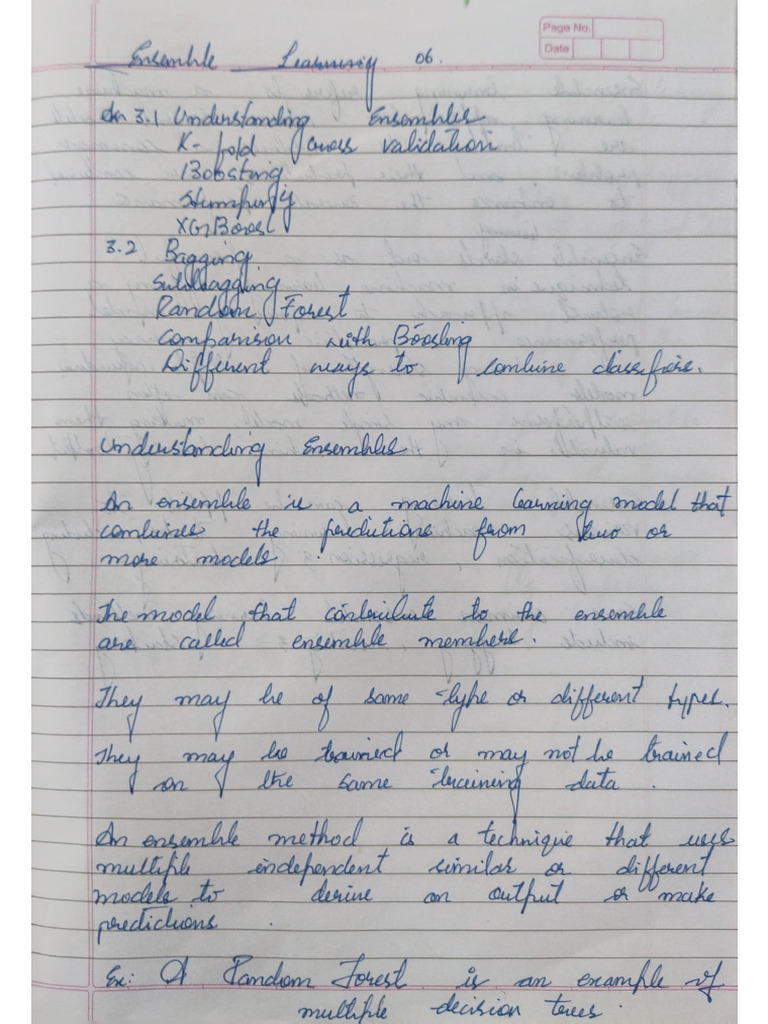 Page No.
Date
Ensemble Learning 06.
ch 3.1 Understanding Ensembles
K-fold cross validation
Boosting
Stumping
XGBoost
3.2 Bagging
Subbagging
Random Forest
Comparison with Boosting
Different ways to combine classifiers.
Understanding Ensembles
An ensemble is a machine learning model that
combines the predictions from two or
more models.
The model that contribute to the ensemble
are called ensemble members.
They may be of same type or different types.
They may be trained or may not be trained
on the same training data.
An ensemble method is a technique that uses
multiple independent similar or different
models to derive an output or make
predictions.
Ex: A Random Forest is an example of
multiple decision trees.